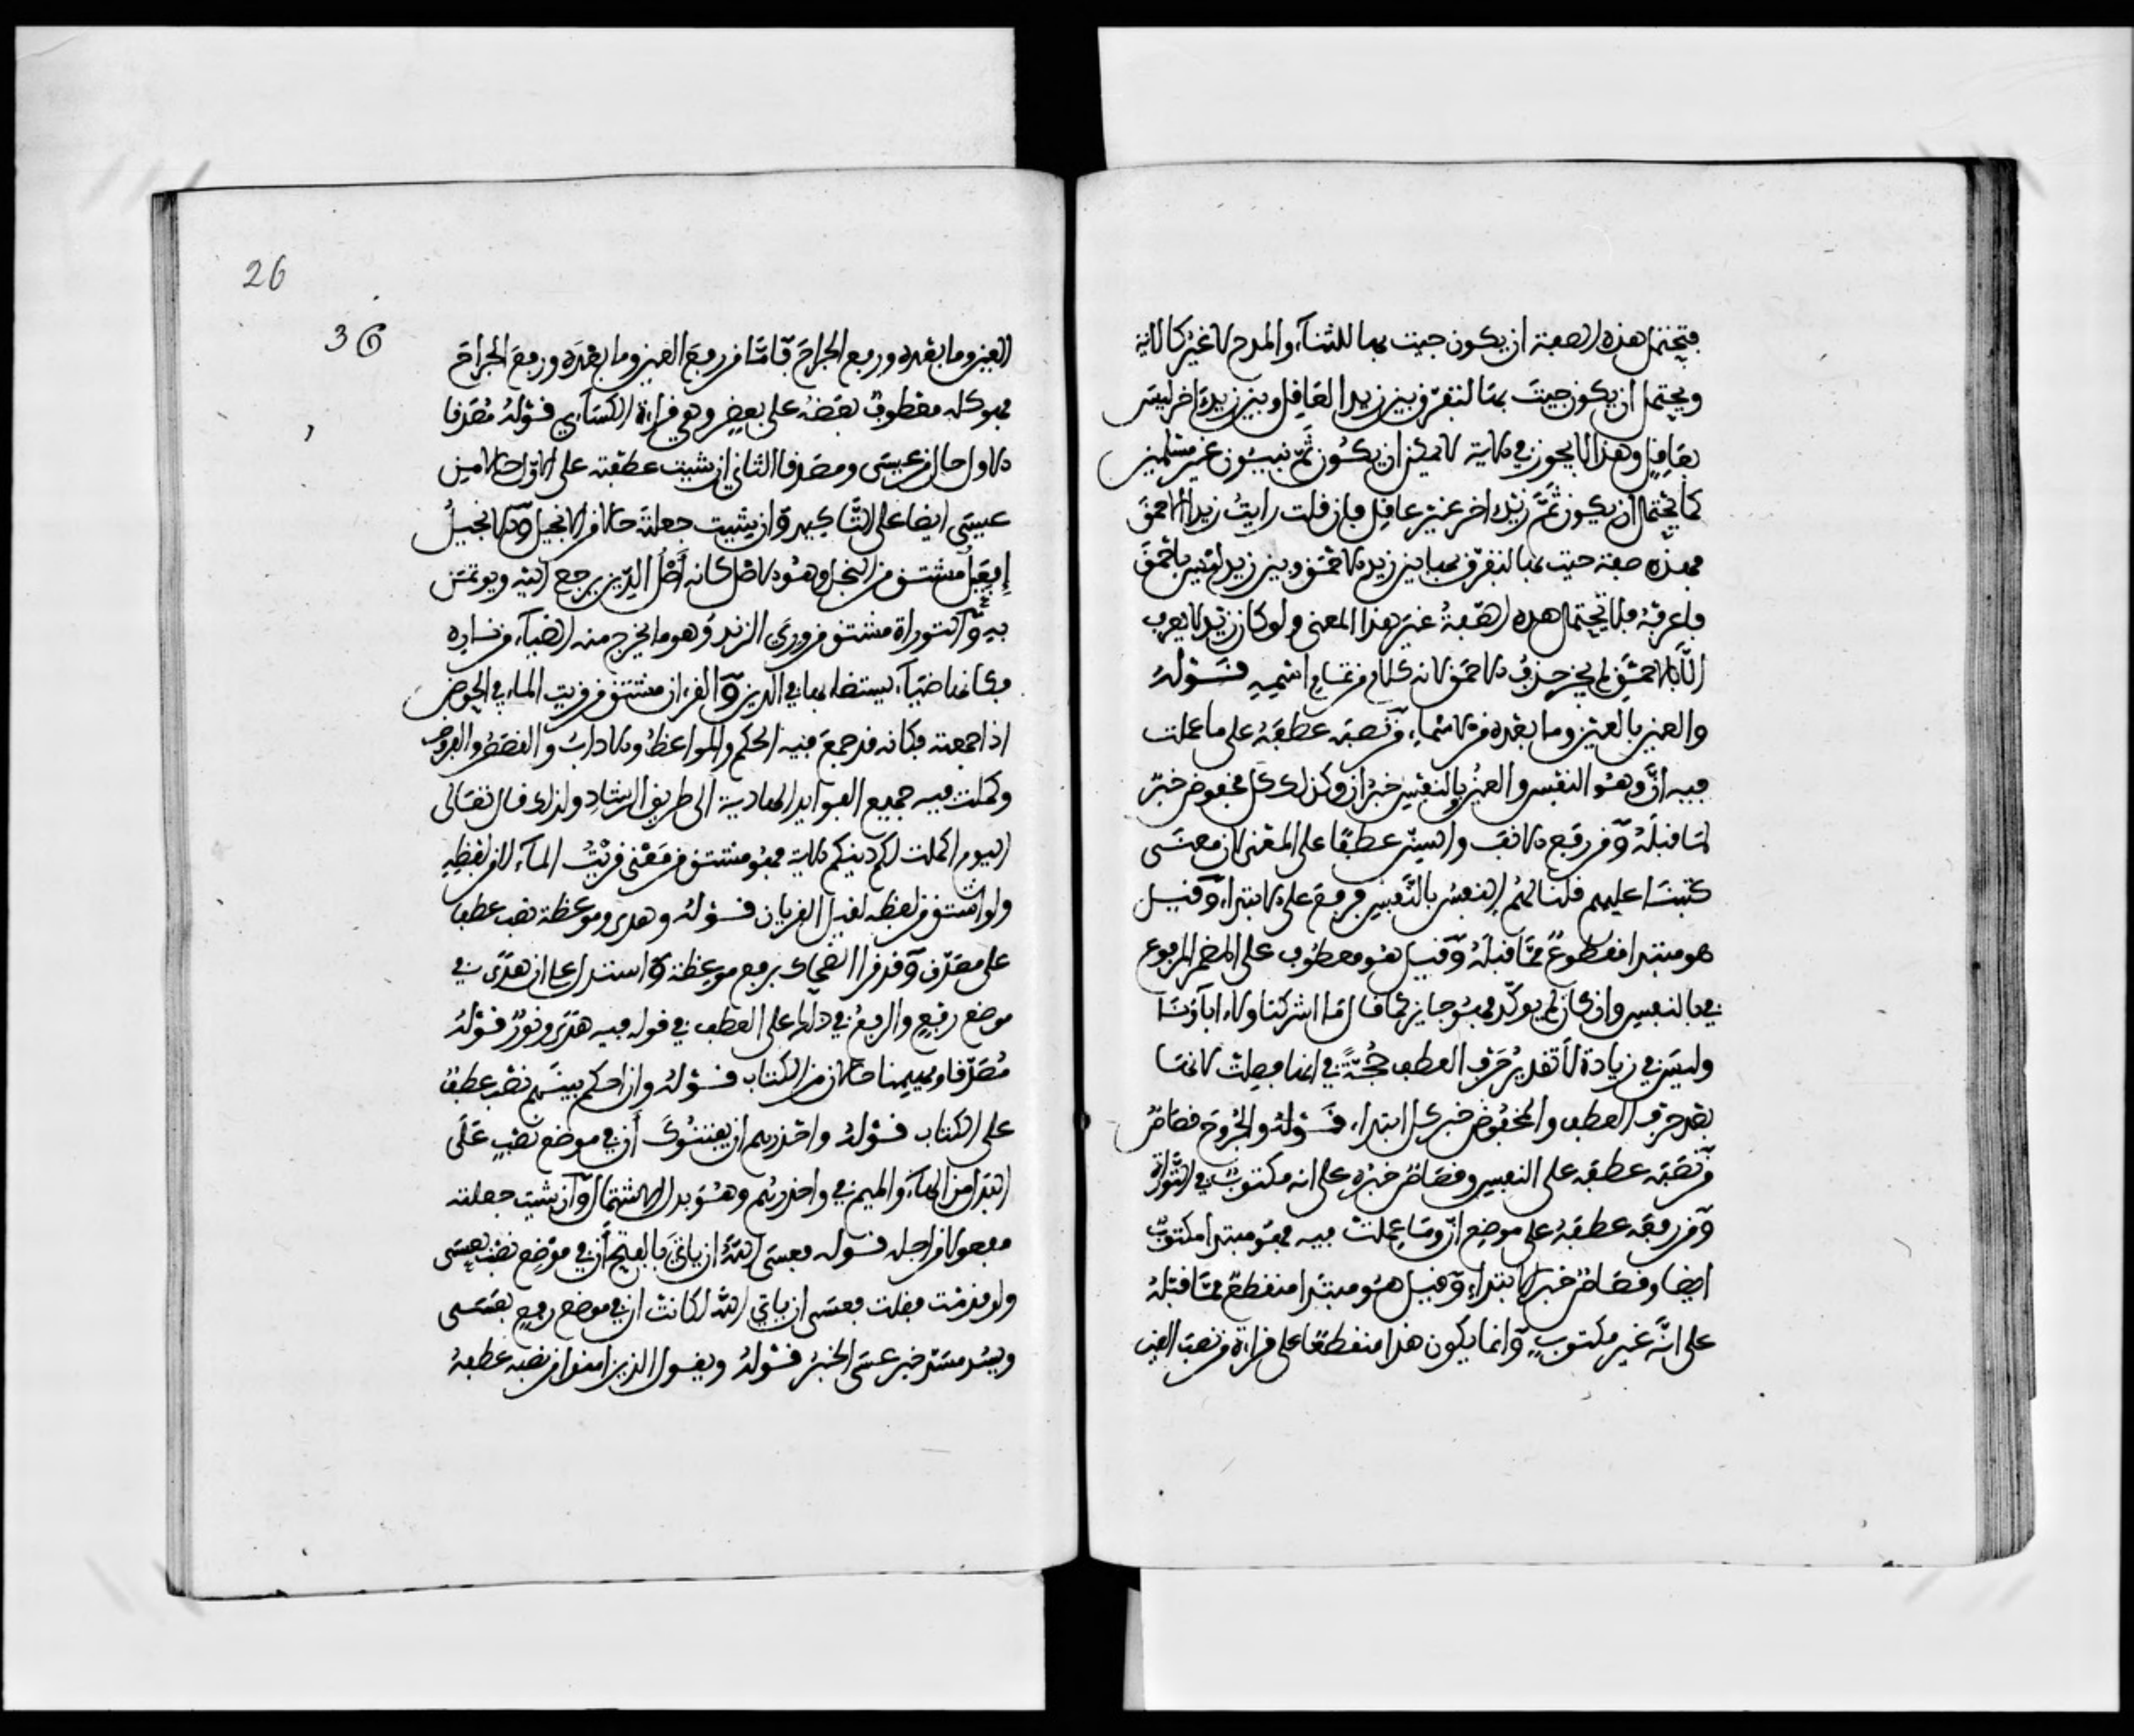 فتحتمل هذه الصفة ان يكون جيت بها للثناء والمدح لا غير كالاية
ويحتمل ان يكون جيت بها لتفرق بين زيد العاقل وبين زيد اخر ليس
بعاقل وهذا لا يجوز في الاية لا يمكن ان يكون ثم نبيئون غير مسلمين
كما يحتمل ان يكون ثم زيد اخر غير عاقل فان قلت رايت زيدا الاحمق
فهذه صفة جيت بها لتفرق بها بين زيد الاحمق وبين زيد ليس باحمق
فاعرفه فلا تحتمل هذه الصفة غير هذا المعنى ولو كان زيد لا يعرف
الا بالاحمق لم يجز حذف الاحمق لانه كلام من تمام اسمه قوله
والعين بالعين وما بعده من الاسماء من نصبه عطفه على ما عملت
فيه ان وهو النفس والعين بالنفس خبر ان وكذلك كل مخفوض خبر
لما قبله ومن رفع الانف والسن عطفا على المعنى لان معنى
كتبنا عليهم قلنا لهم النفس بالنفس فرفع على الابتداء وقيل
هو مبتدا مقطوع مما قبله وقيل هو معطوف على المضمر المرفوع
في بالنفس وان كان لم يوكد فهو جايز كما قال ما اشركنا ولا اباؤنا
وليس في زيادة لا تقدير حرف العطف حجة في انها فصلت لانها
بعد حرف العطف والمخفوض خبر كل ابتداء قوله والجروح قصاص
من نصبه عطفه على النفس وقصاص خبره على انه مكتوب في التوراة
ومن رفعه عطفه على موضع ان وما عملت فيه فهو مبتدا مكتوب
ايضا وقصاص خبر الابتداء وقيل هو مبتدا منقطع مما قبله
على انه غير مكتوب وانما يكون هذا منقطعا على قراءة من نصب العين
26
36
العين وما بعده ورفع الجراح فاما من رفع العين وما بعده ورفع الجراح
فهو كله معطوف بعضه على بعض وهي قراءة الكساءي قوله مصدقا
الاول حال من عيسى ومصدقا الثاني ان شيت عطفته على الاول حالا من
عيسى ايضا على التاكيد وان شيت جعلته حالا من الانجيل والانجيل
إفعيل مشتق من النجل وهو الاصل كانه أصل الدين يرجع اليه ويوتم
به والتوراة مشتق من وري الزند وهو ما يخرج منه الضياء من ناره
فكانها ضياء يستضاء بها في الدين والقران مشتق من قريت الماء في الحوض
اذا جمعته فكانه قد جمع فيه الحكم والمواعظ والاداب والقصص والفروض
وكملت فيه جميع الفوايد الهادية الى طريق الرشاد ولذلك قال تعالى
اليوم اكملت لكم دينكم الاية فهو مشتق من معنى قريت الماء لا من لفظه
ولو اشتق من لفظه لقيل القريان قوله وهدى وموعظة نصب عطف
على مصدق وقد قرا الضحاك برفع موعظة واستدل على ان هدى في
موضع رفع والرفع في ذلك على العطف في قوله فيه هدى ونور قوله
مصدقا ومهيمنا حالان من الكتاب قوله وان احكم بينهم نصب عطف
على الكتاب قوله واحذرهم ان يفتنوك أن في موضع نصب على
البدل من الهاء والميم في واحذرهم وهو بدل الاشتمال وان شيت جعلته
مفعولا من اجله قوله فعسى الله ان ياتي بالفتح أن في موضع نصب بعسى
ولو قدمت فقلت فعسى ان ياتي الله لكانت ان في موضع رفع بعسى
ويسد مسد خبر عسى الخبر قوله ويقول الذين امنوا من نصبه عطفه